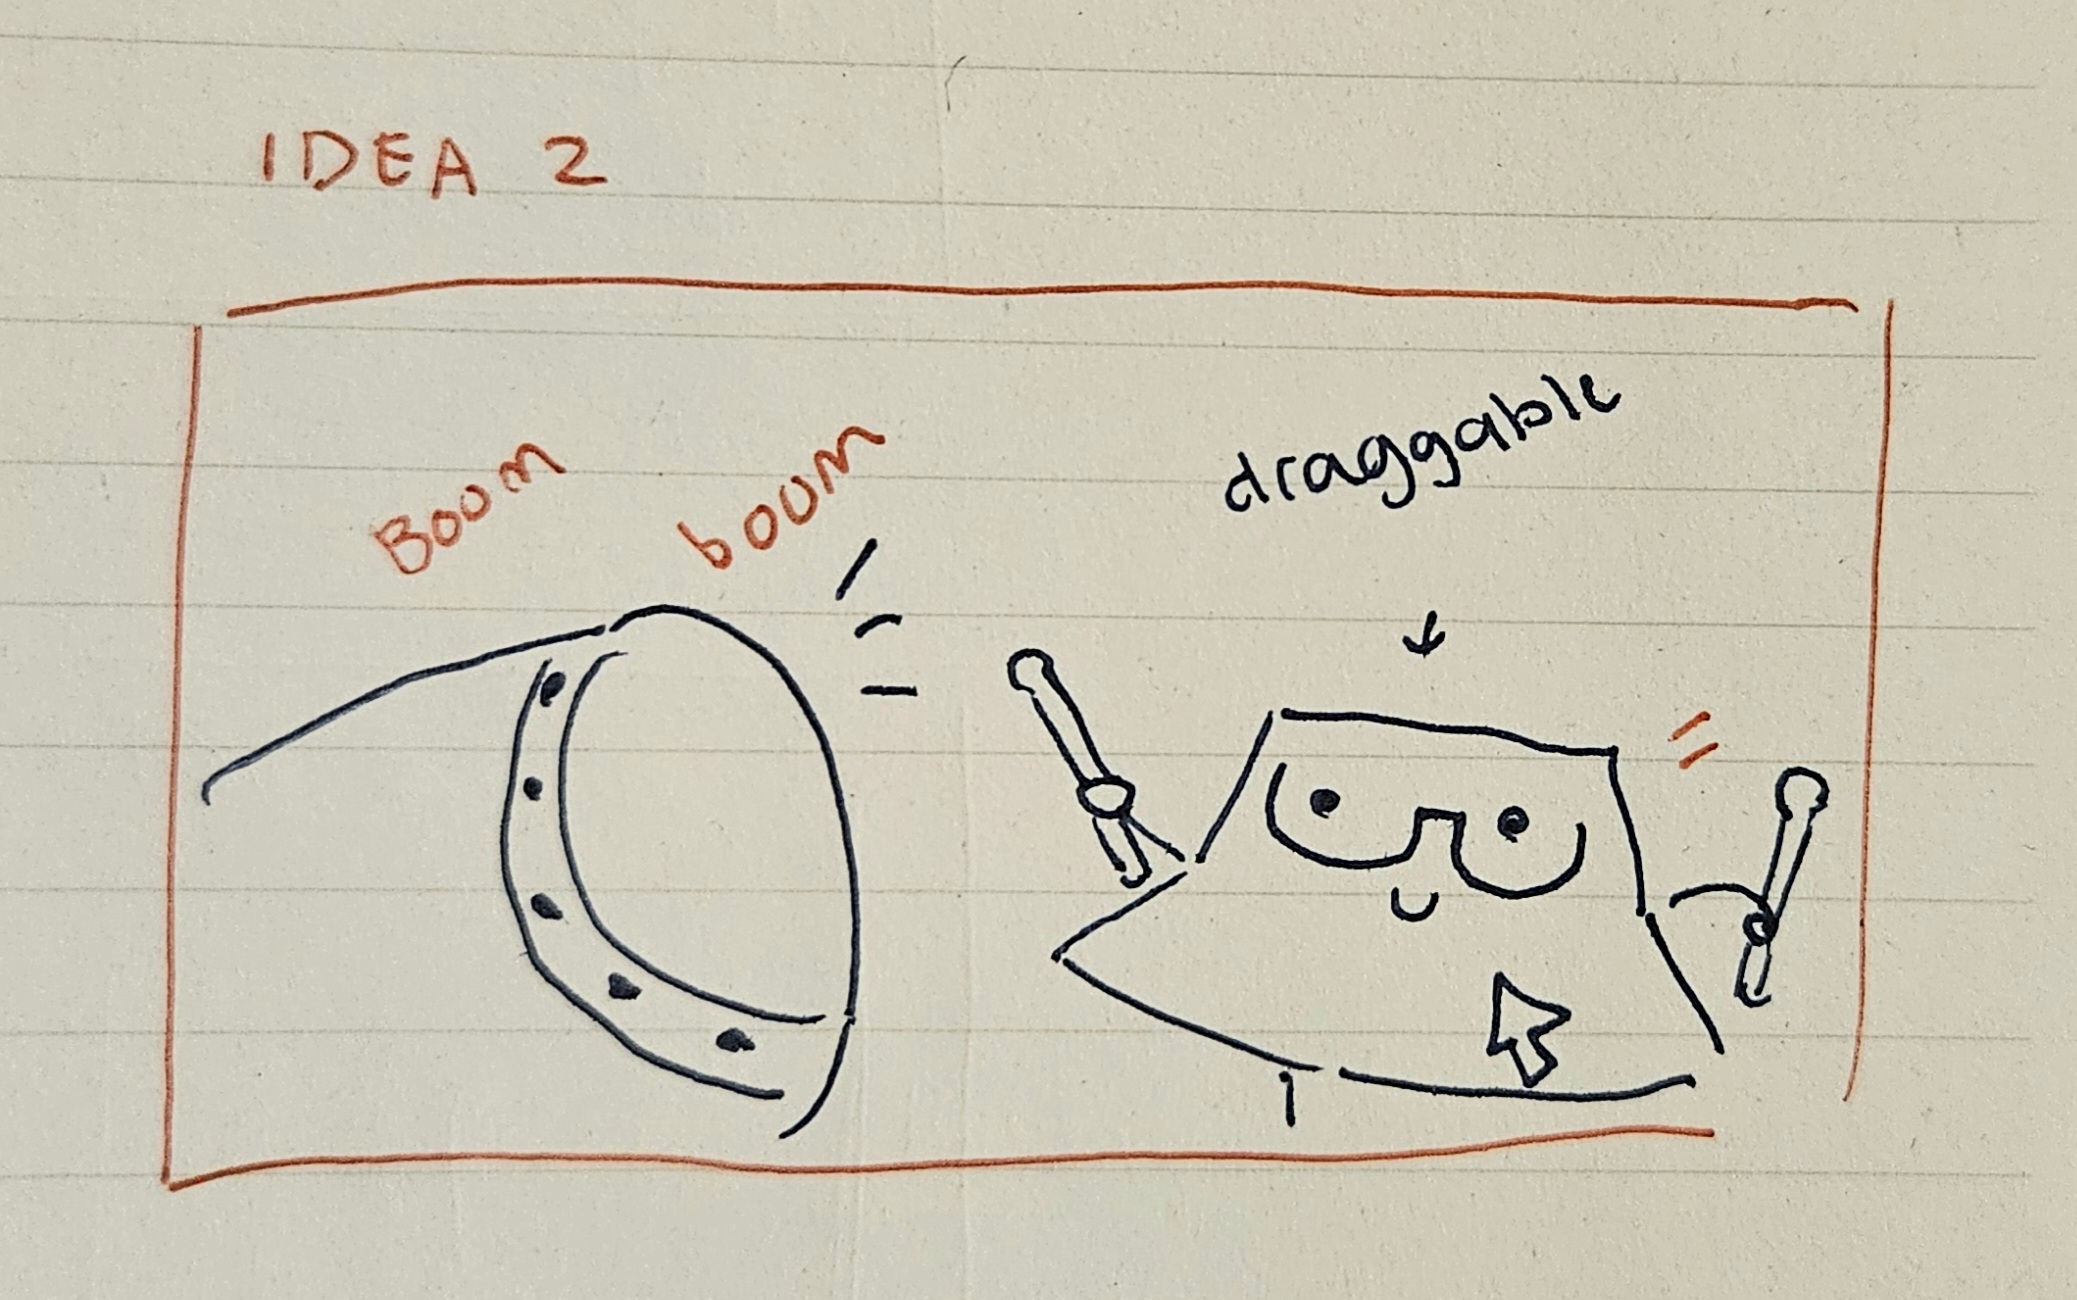 IDEA 2
Boom
boom
draggable